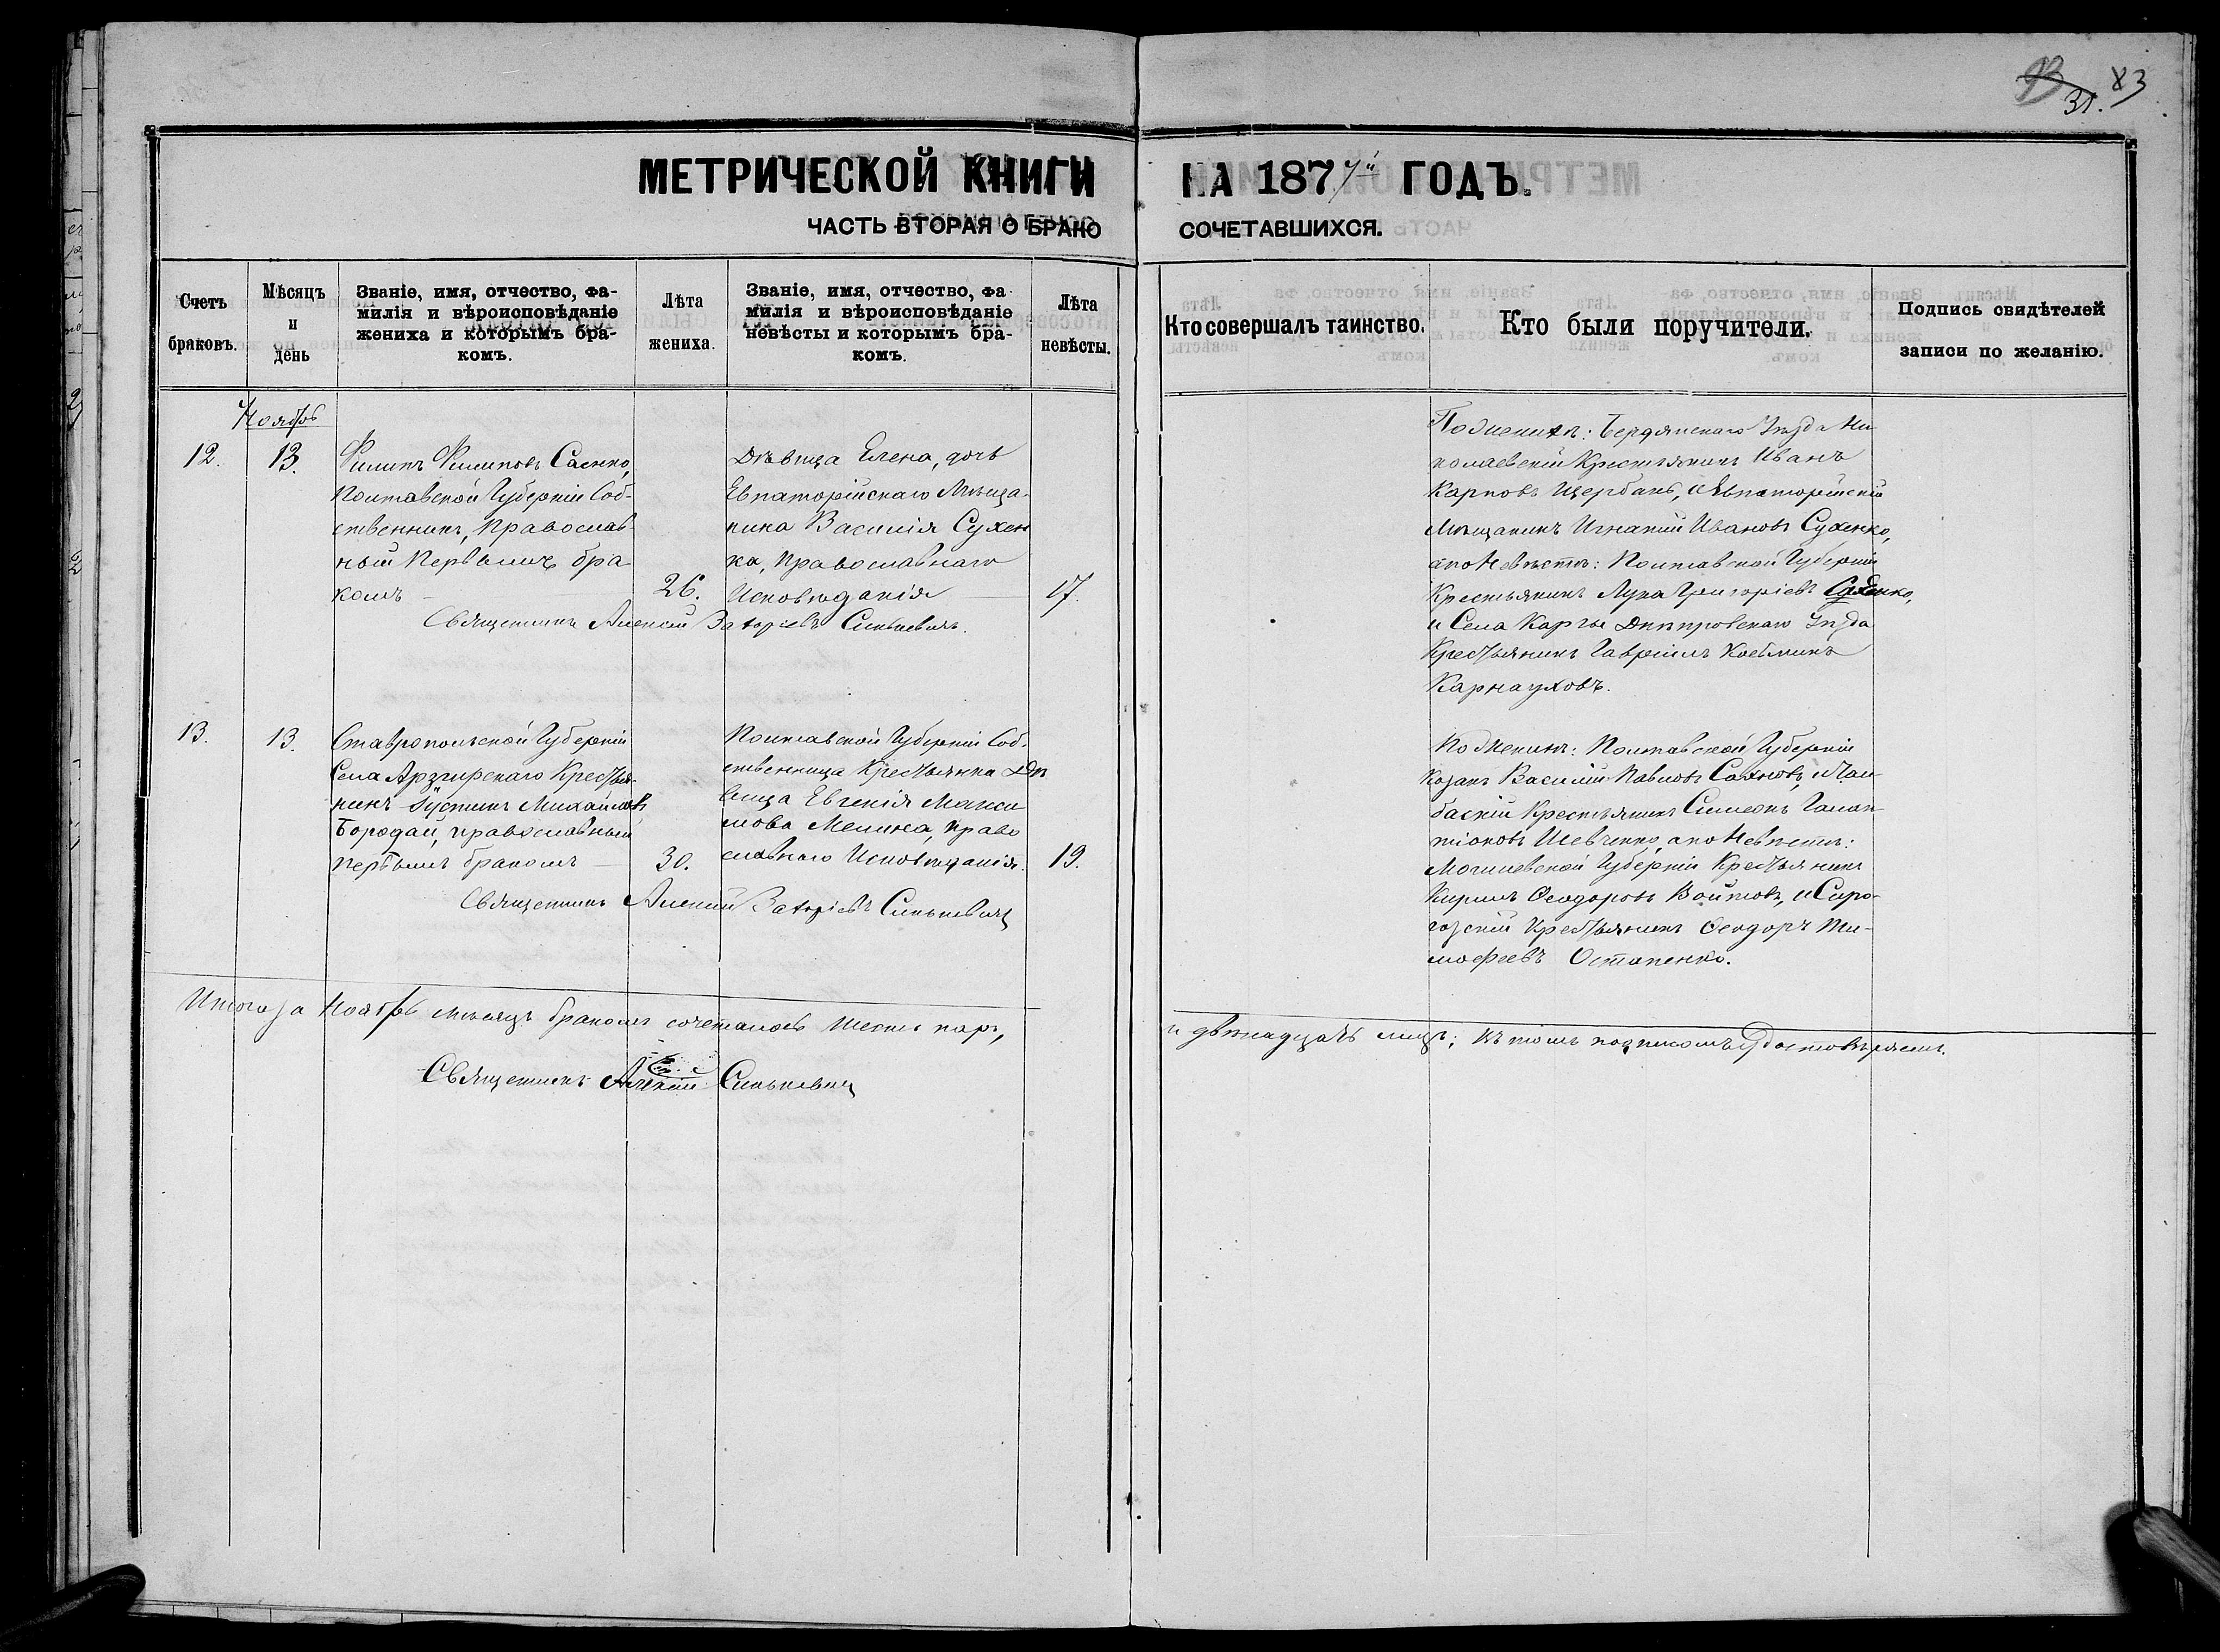 83
31.
МЕТРИЧЕСКОЙ КНИГИ НА 1877й ГОДЪ.
ЧАСТЬ ВТОРАЯ О БРАКО СОЧЕТАВШИХСЯ.
Счетъ браковъ.
Мѣсяцъ и день
Званіе, имя, отчество, фа-
милія и вѣроисповѣданіе
жениха и которымъ бра-
комъ.
Лѣта жениха.
Званіе, имя, отчество, фа
милія и вѣроисповѣданіе
невѣсты и которымъ бра-
комъ.
Лѣта невѣсты.
Кто совершалъ таинство.
Кто были поручители.
Подпись свидѣтелей
записи по желанію.
Ноябрь
12.
13.
Филипъ Филиповъ Саенко,
Полтавской Губерніи Соб-
ственникъ, Православ-
ный Первымъ бра-
комъ
26.
Дѣвица Елена, дочь
Евпаторійскаго Мѣща-
нина Василія Сухен
ка, Православнаго
Исповѣданія
17
Священникъ Алексій Синькевичъ.
По Женихѣ: Бердянскаго Уѣзда Ни
колаевскій Крестьянинъ Иванъ
Карповъ Щербань, и Евпаторійскій
Мѣщанинъ Игнатій Ивановъ Сухенко,
а по Невѣстѣ: Полтавской Губерніи
Крестьянинъ Лука Григоріевъ Сухенко,
и Села Карги Днѣпровскаго Уѣзда
Крестьянинъ Гавріилъ Косьминъ
Карнауховъ.
13.
13.
Ставропольской Губерніи
Села Арзгирскаго Крестья-
нинъ Іустинъ Михайловъ
Бородай, православный
первымъ бракомъ
30.
Полтавской Губерніи Соб-
ственница Крестьянка Дѣ
вица Евгенія Макси
мова Мелина, право
славнаго Исповѣданія.
19.
Священникъ Алексій Синькевичъ
По Женихѣ: Полтавской Губерніи
Козакъ Василій Павловъ Сахновъ, и Чал
баскій Крестьянинъ Симеонъ Галак
тіоновъ Шевченко, а по Невѣстѣ:
Могилевской Губерніи Крестьянинъ
Кирилъ Феодоровъ Войтовъ, и Сиро-
гозскій Крестьянинъ Феодоръ Ти-
мофеевъ Остапенко.
Итого за Ноябрь мѣсяцъ бракомъ сочеталось Шесть паръ, и двѣнадцать лицъ; въ томъ подписомъ удостовѣряемъ.
Священникъ Алексій Синькевичъ